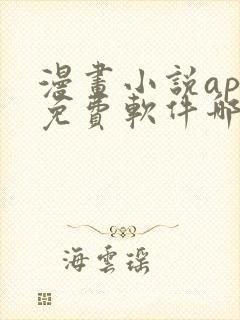 漫畫小說ap
免費軟件哪
海雲瑤